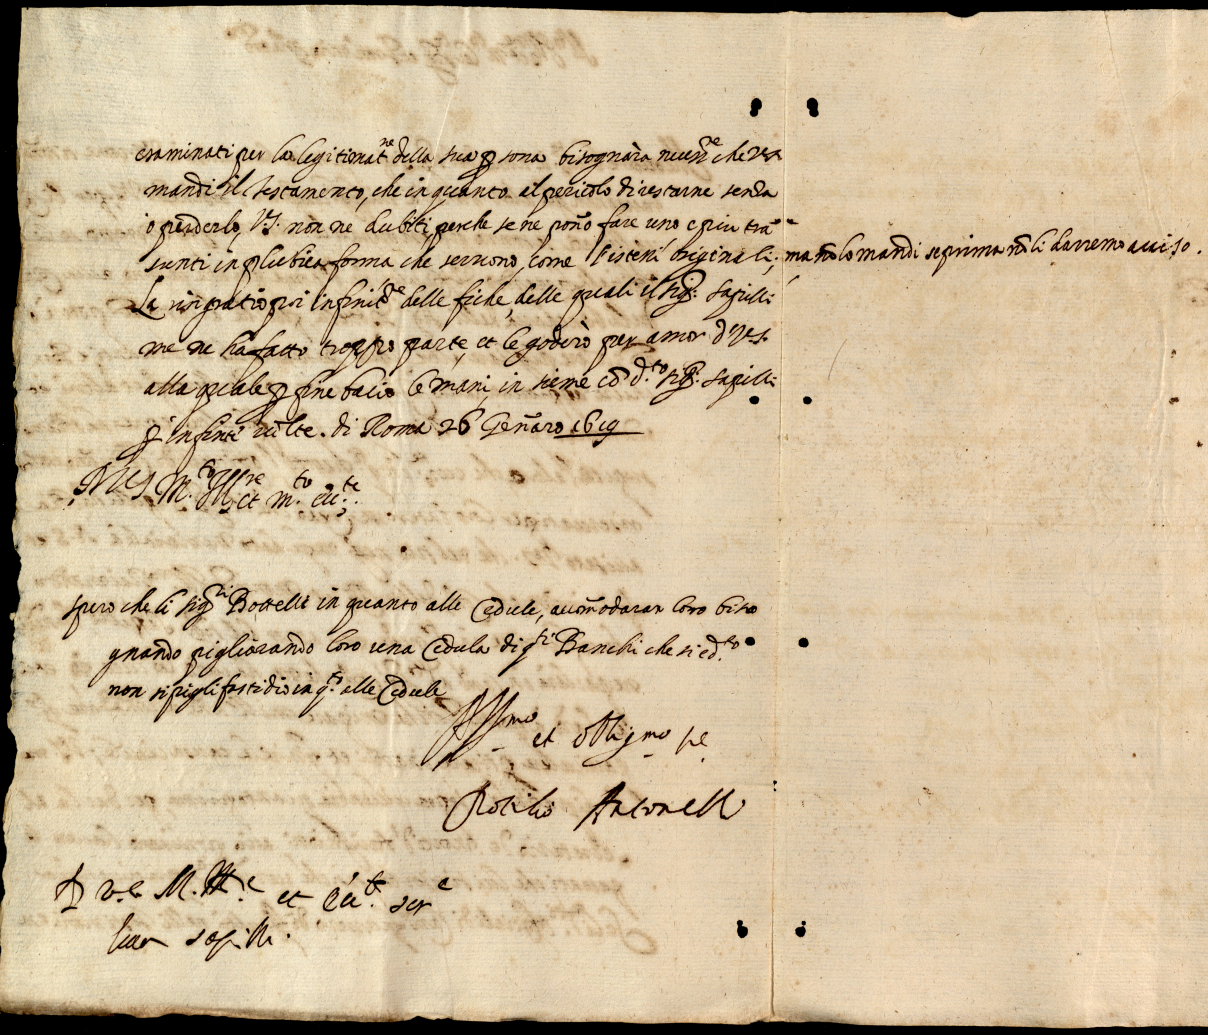 esaminati per la legitimat.ne della sua p sona bisognarà necess.e che VS
mandi il testamento, che in quanto al pericolo di restarne senza
o perderlo, VS. non ne dubiti, perche se ne pono fare uno e piu tra
sunti in publica forma che servono, come l'istessi originali; ma nō lo mandi se prima nō li darremo aviso.
La ringratio poi infinit.e delle fiche, delle quali il sig.r Sapilli
me ne ha fatto troppo parte, et le goderò per amor di VS.
alla quale p fine bacio le mani, in sieme cō d.to sig.r Sapilli
p infinite volte. di Roma 26 Gennaro 1619
Di VS M.to Ill.re et m.to ecc.te
spero che li sig.ri Bottelli in quanto alle Cedule, accomodaran loro biso
gnando pigliarando loro una Cedula di q.sti Banchi che si cō d.to
non si pigli fastidio in q.to alle Cedule
Aff.mo et oblig.mo se.
Rotilio Antonelli
D v.s M. Ill.e et Ecc.te ser.e
Sapilli.